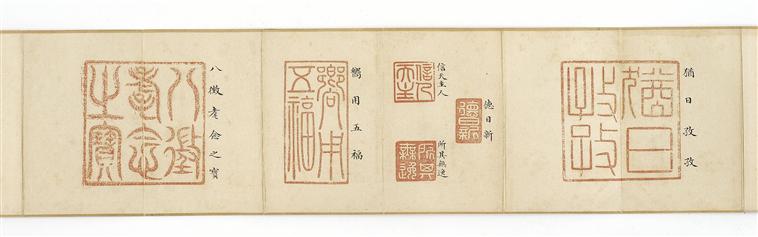 猶日孜孜
猶日
孜孜
德日新
德日新
信天主人
信天
主人
所其無逸
所其
無逸
嚮用五福
嚮用
五福
八徵耄念之寶
八徵
耄念
之寶